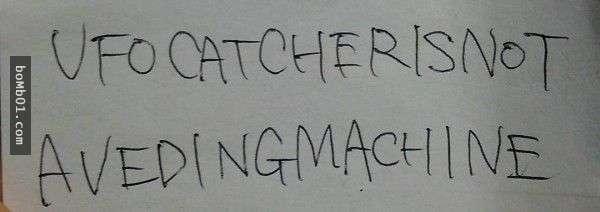 UFO CATCHER IS NOT
A VEDING MACHINE
boMb01.com